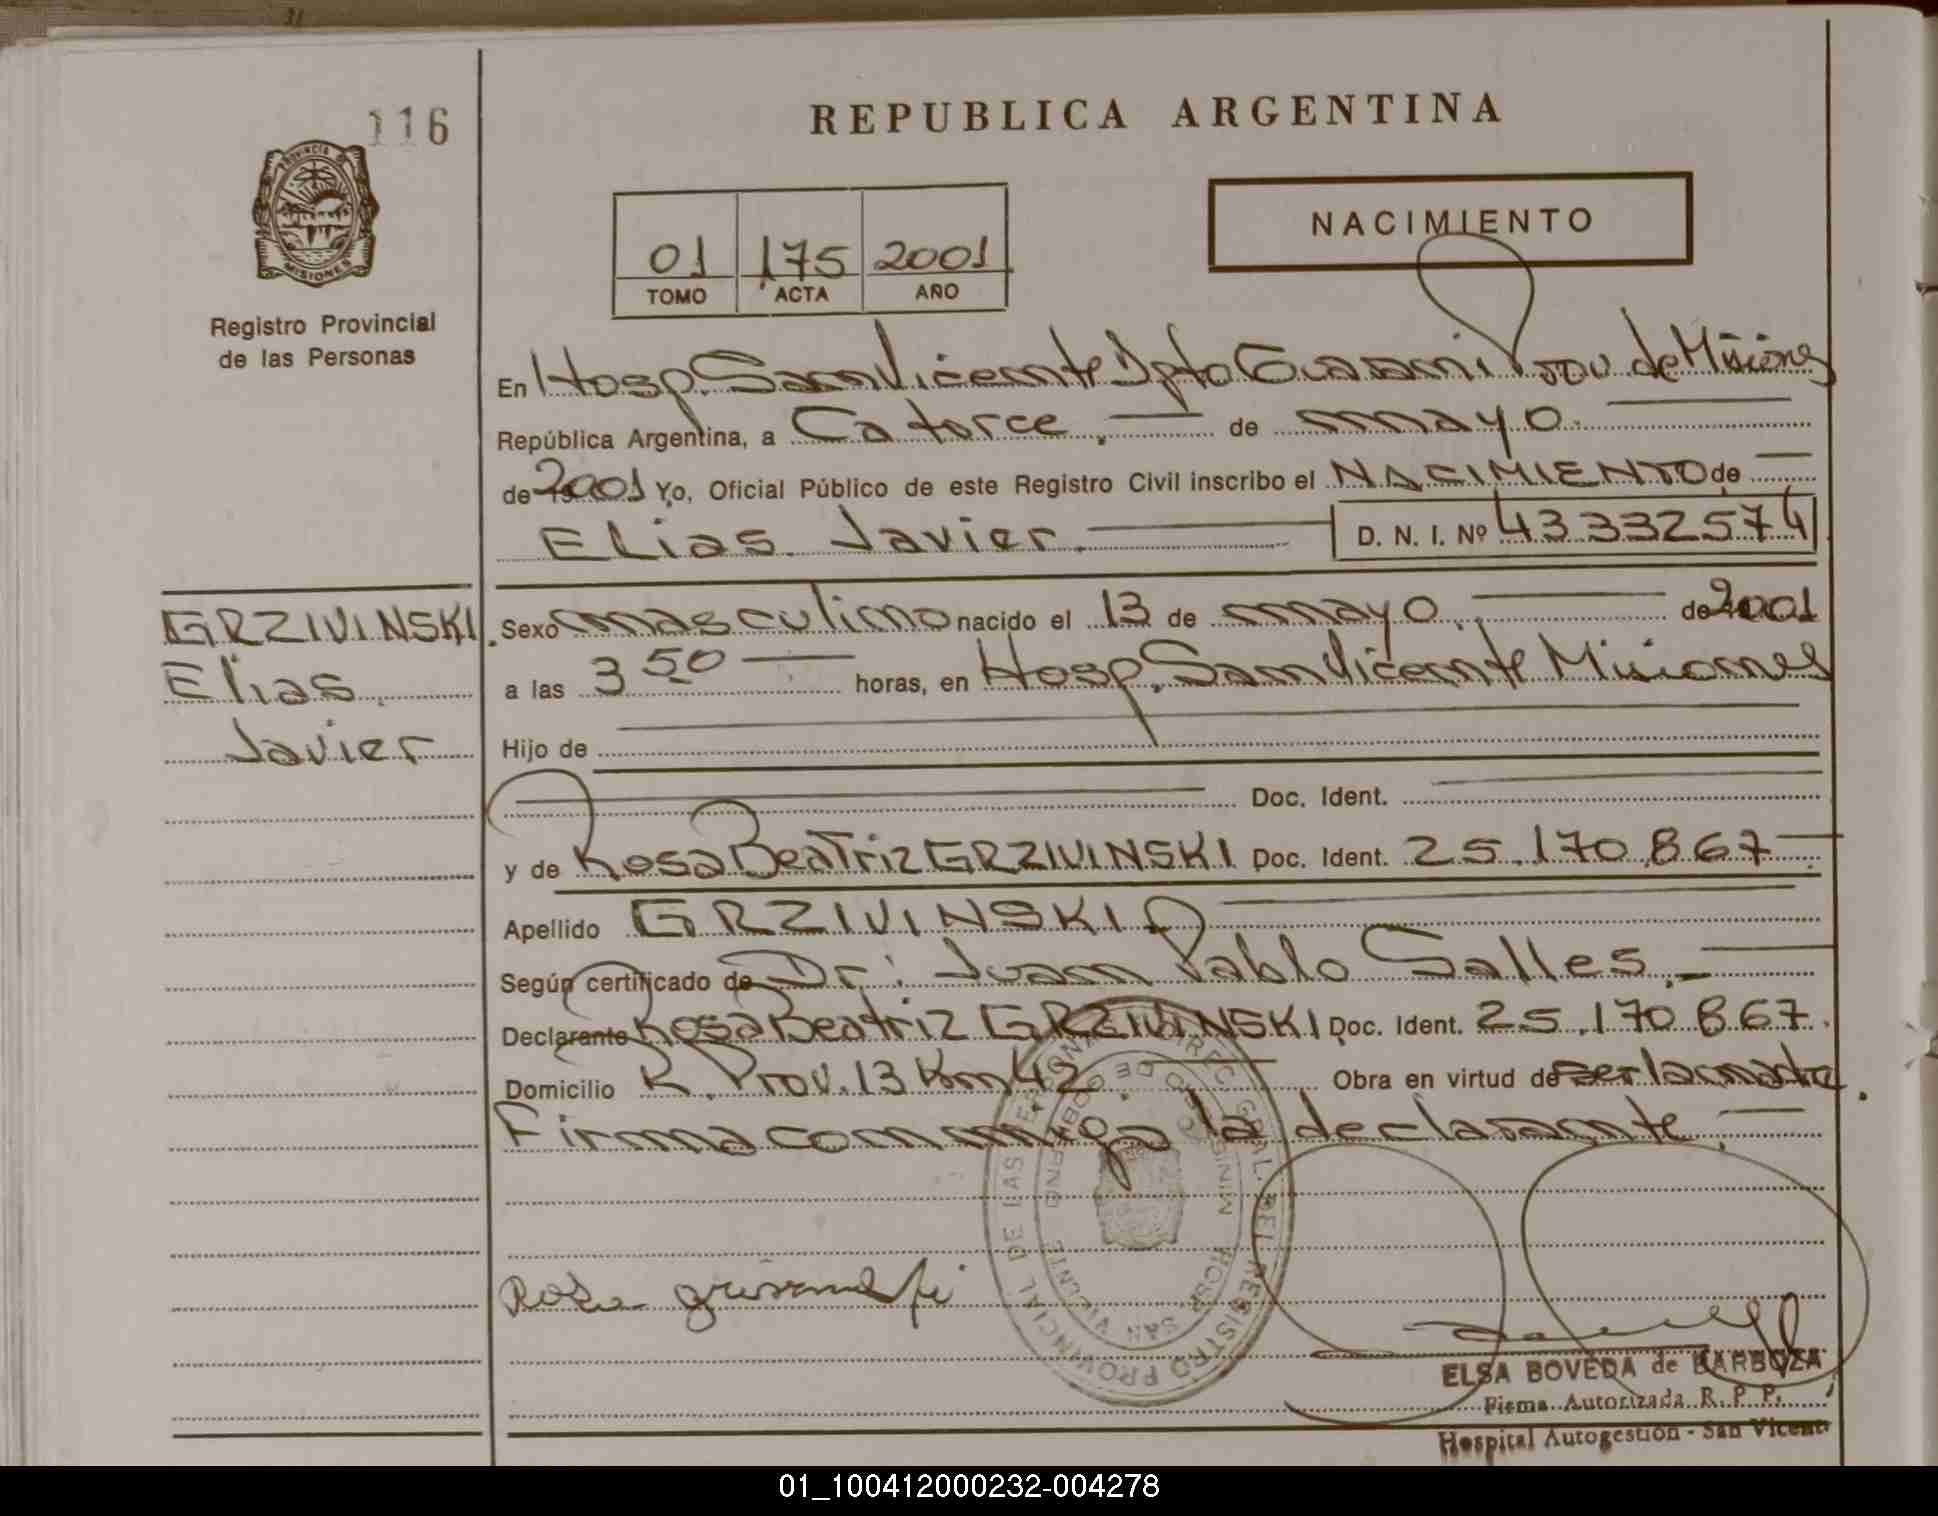 116
REPUBLICA ARGENTINA
PROVINCIA DE
MISIONES
Registro Provincial
de las Personas
NACIMIENTO
01 175 2001
TOMO ACTA AÑO
En Hosp. San Vicente Dpto Guarani Prov de Misiones
República Argentina, a Catorce. de mayo.
de 2001 Yo, Oficial Público de este Registro Civil inscribo el NACIMIENTO de
Elias Javier D. N. I. Nº 43332574
GRZIVINSKI
Elias
Javier
Sexo masculino nacido el 13 de mayo de 2001
a las 3 50 horas, en Hosp. San Vicente Misiones
Hijo de
Doc. Ident.
y de Rosa Beatriz GRZIVINSKI Doc. Ident. 25.170.867
Apellido GRZIVINSKI
Según certificado de Dr: Juan Pablo Salles.
Declarante Rosa Beatriz GRZIVINSKI Doc. Ident. 25.170.867.
Domicilio R. Prov. 13 Km 42 Obra en virtud de ser la madre.
Firma conmigo la declarante.
DIREC. GRAL. DEL REGISTRO PROVINCIAL DE LAS PERSONAS
SAN VICENTE
Rosa
ELSA BOVEDA de BARBOZA
Firma Autorizada R. P. P.
Hospital Autogestión - San Vicente
01_100412000232-004278